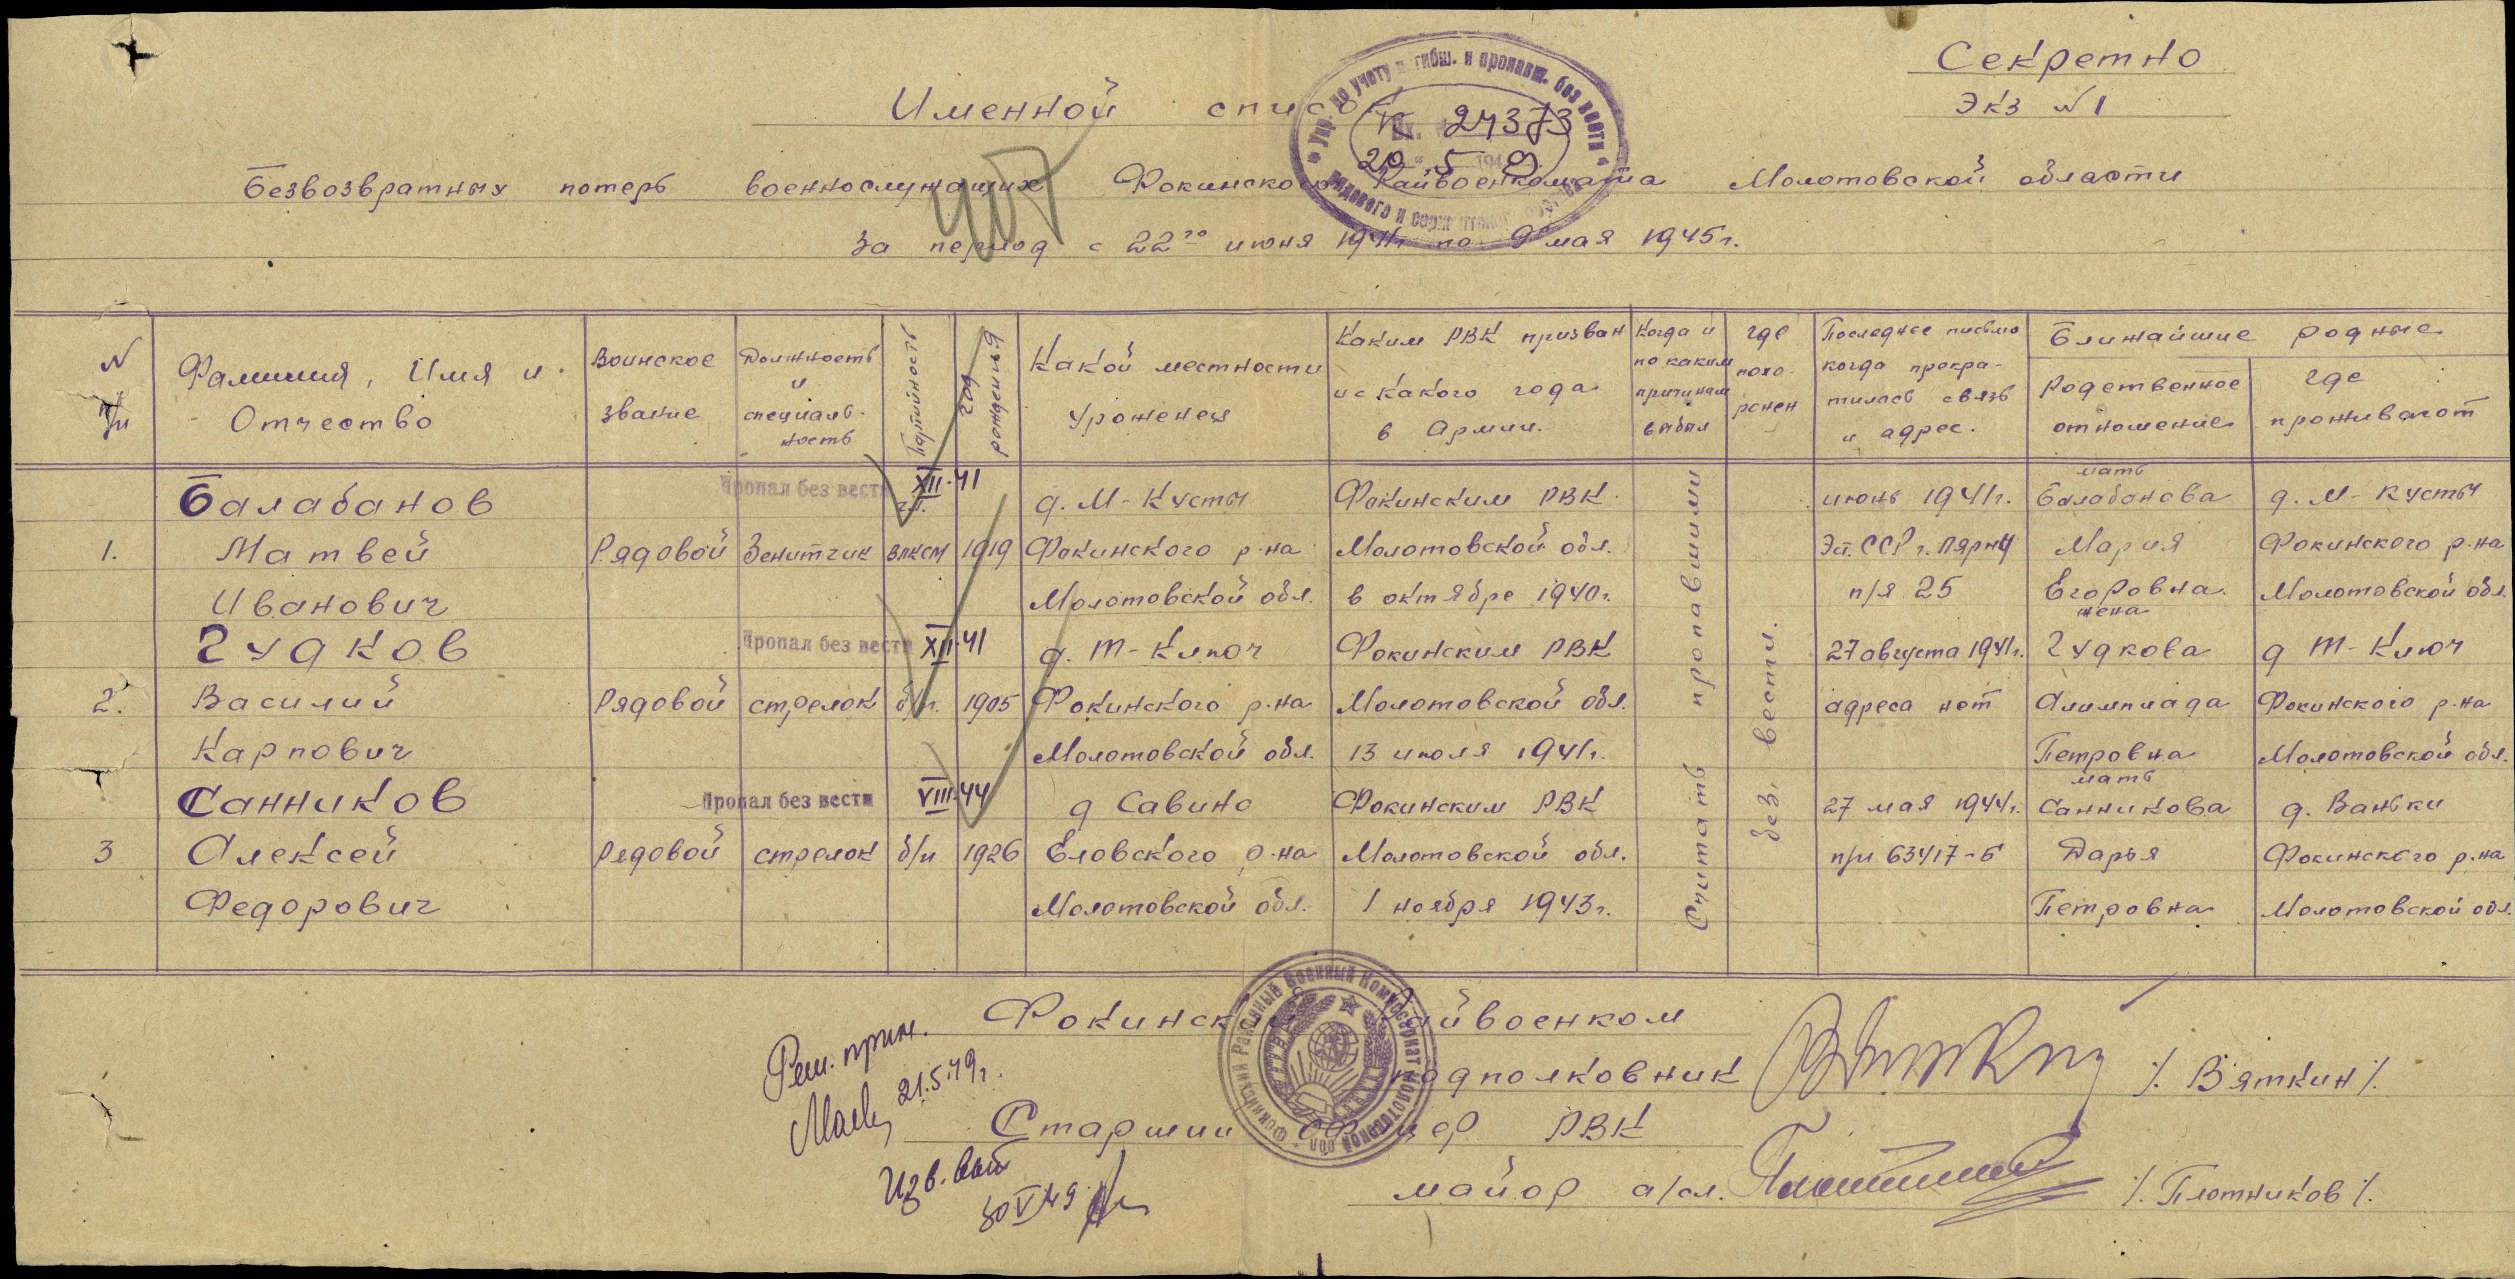 Секретно
Экз №1
Именной список
Безвозвратных потерь военнослужащих Фокинского Райвоенкомата Молотовской области
За период с 22го июня 1941г по 9 мая 1945г.
407
Упр. по учету погибш. и пропавш. без вести
рядового и сержантского состава
Вх. 24373
20 5 1949
№ п/п
Фамилия, Имя и Отчество
Воинское звание
Должность и специальность
Партийность
год рождения
Какой местности уроженец
Каким РВК призван и с какого года в Армии.
Когда и по каким причинам выбыл
где похоронен
Последнее письмо когда прекратилась связь и адрес.
Ближайшие родные
Родственное отношение
где проживают
Пропал без вести XII-41
мать
Балабанов д. М-Кусты Фокинским РВК июнь 1941г. Балабанова д. М-Кусты
1. Матвей Рядовой Зенитчик ВЛКСМ 1919 Фокинского р-на Молотовской обл. Эст. ССР г. Пярну Мария Фокинского р-на
Иванович Молотовской обл. в октябре 1940г. п/я 25 Егоровна Молотовской обл.
Считать пропавшими
без вести.
Пропал без вести XII-41
жена
Гудков д. Т-Ключ Фокинским РВК 27 августа 1941г. Гудкова д Т-Ключ
2. Василий Рядовой стрелок б/п. 1905 Фокинского р-на Молотовской обл. адреса нет Олимпиада Фокинского р-на
Карпович Молотовской обл. 13 июля 1941г. Петровна Молотовской обл.
Пропал без вести VIII-44
мать
Санников д Савино Фокинским РВК 27 мая 1944г. Санникова д. Ваньки
3 Алексей Рядовой стрелок б/п 1926 Еловского р-на Молотовской обл. п/п 63417-Б Дарья Фокинского р-на
Федорович Молотовской обл. 1 ноября 1943г. Петровна Молотовской обл.
Фокинский Райвоенком
подполковник /. Вяткин /.
Старший офицер РВК
майор а/сл. /. Плотников /.
Фокинский Районный Военный Комиссариат Молотовской обл.
Реш. прин.
21.5.49г.
Изв. выс
30 V 49